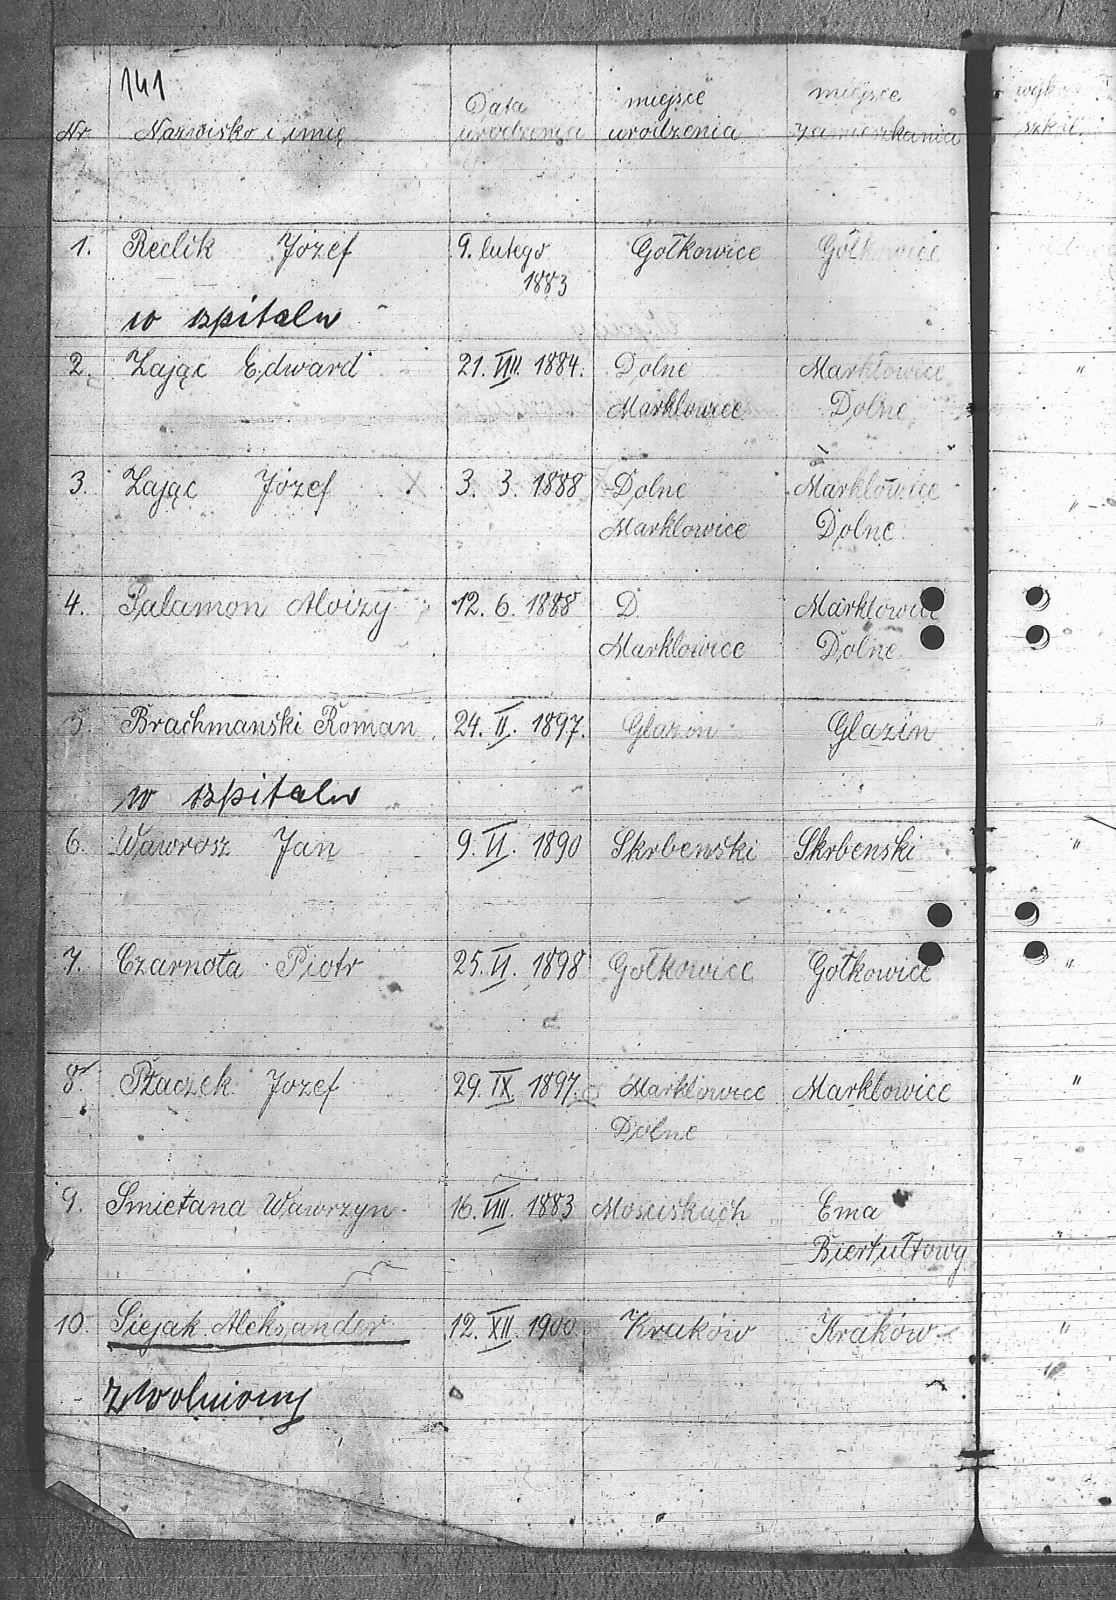 141
Nr. Nazwisko i imię Data urodzenia miejsce urodzenia miejsce zamieszkania
1. Reclik Józef 9. lutego Gołkowice Gołkowice
1883
w szpitalu
2. Zając Edward 21. VIII. 1884. Dolne Marklowice "
Marklowice Dolne
3. Zając Józef X 3. 3. 1888 Dolne Marklowice "
Marklowice Dolne
4. Salamon Aloizy 12. 6. 1888 D. Marklowice
Marklowice Dolne
5. Brachmanski Roman 24. II. 1897. Glazin Glazin
w szpitalu
6. Wawrosz Jan 9. VI. 1890 Skrbenski Skrbenski "
7. Czarnota Piotr 25. VI. 1898 Gołkowice Gołkowice "
8. Ptaczek Jozef 29. IX. 1897. Marklowice Marklowice "
Dolne
9. Smietana Wawrzyn 16. VIII. 1883 Mosciskach Ema
Biertułtowy "
10. Siejak Aleksander 12. XII. 1900 Kraków Kraków "
zwolniony